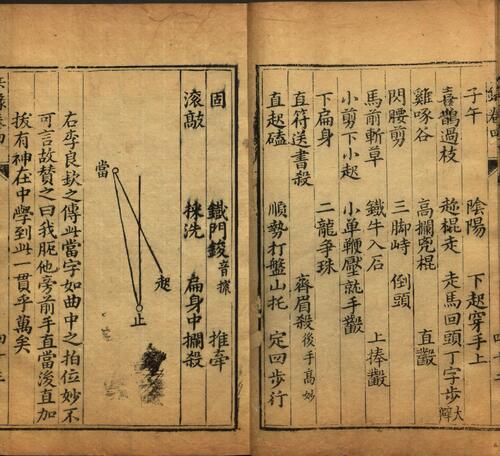 子午　陰陽　下起穿手上
喜鵲過枝　趂棍走　走馬回頭丁字步大僻
雞啄谷　高攔兠棍　直鬭
閃腰剪　三脚峙　倒頭
馬前斬草　鐵牛入石　上捧鬭
小剪下小起　小單鞭壓就手鬭
下扁身　二龍爭珠
直符送書殺　齊眉殺後手高妙
直起磕　順勢打盤山托　定四步行
固　鐵門　音擦　推牽
滾敲　洗　扁身中攔殺
當
起
止
右李良欽之傳此當字如曲中之拍位妙不
可言故贊之曰我厄他旁前手直當後直加
拔有神在中學到此一貫乎萬矣